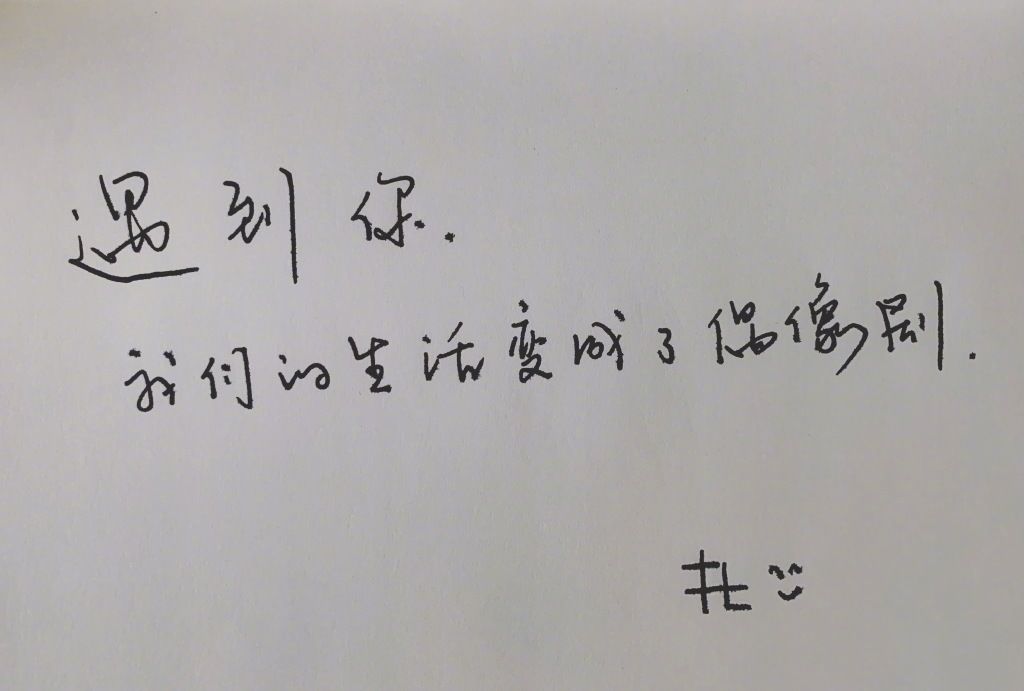 遇到你.
我们的生活变成了偶像剧.